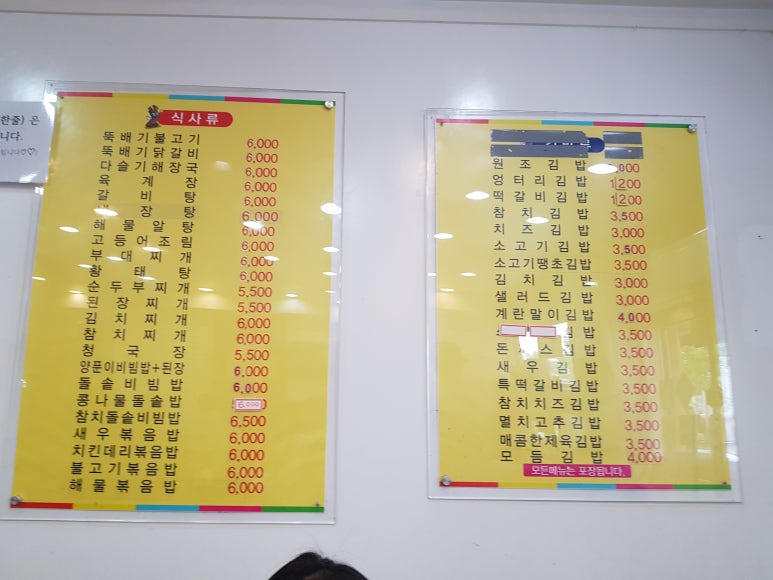 한줄) 은
니다.
식사류
뚝배기불고기 6,000
뚝배기닭갈비 6,000
다슬기해장국 6,000
육계장 6,000
갈비탕 6,000
장탕 6,000
해물알탕 6,000
고등어조림 6,000
부대찌개 6,000
황태탕 6,000
순두부찌개 5,500
된장찌개 5,500
김치찌개 6,000
참치찌개 6,000
청국장 5,500
양푼이비빔밥+된장 6,000
돌솥비빔밥 6,000
콩나물돌솥밥 6,000
참치돌솥비빔밥 6,500
새우볶음밥 6,000
치킨데리볶음밥 6,000
불고기볶음밥 6,000
해물볶음밥 6,000
원조김밥
엉터리김밥 1200
떡갈비김밥 1200
참치김밥 3,500
치즈김밥 3,000
소고기김밥 3,500
소고기땡초김밥 3,500
김치김밥 3,000
샐러드김밥 3,000
계란말이김밥 4,000
김밥 3,500
돈까스김밥 3,500
새우김밥 3,500
특떡갈비김밥 3,500
참치치즈김밥 3,500
멸치고추김밥 3,500
매콤한제육김밥 3,500
모듬김밥 4,000
모든메뉴는 포장됩니다.